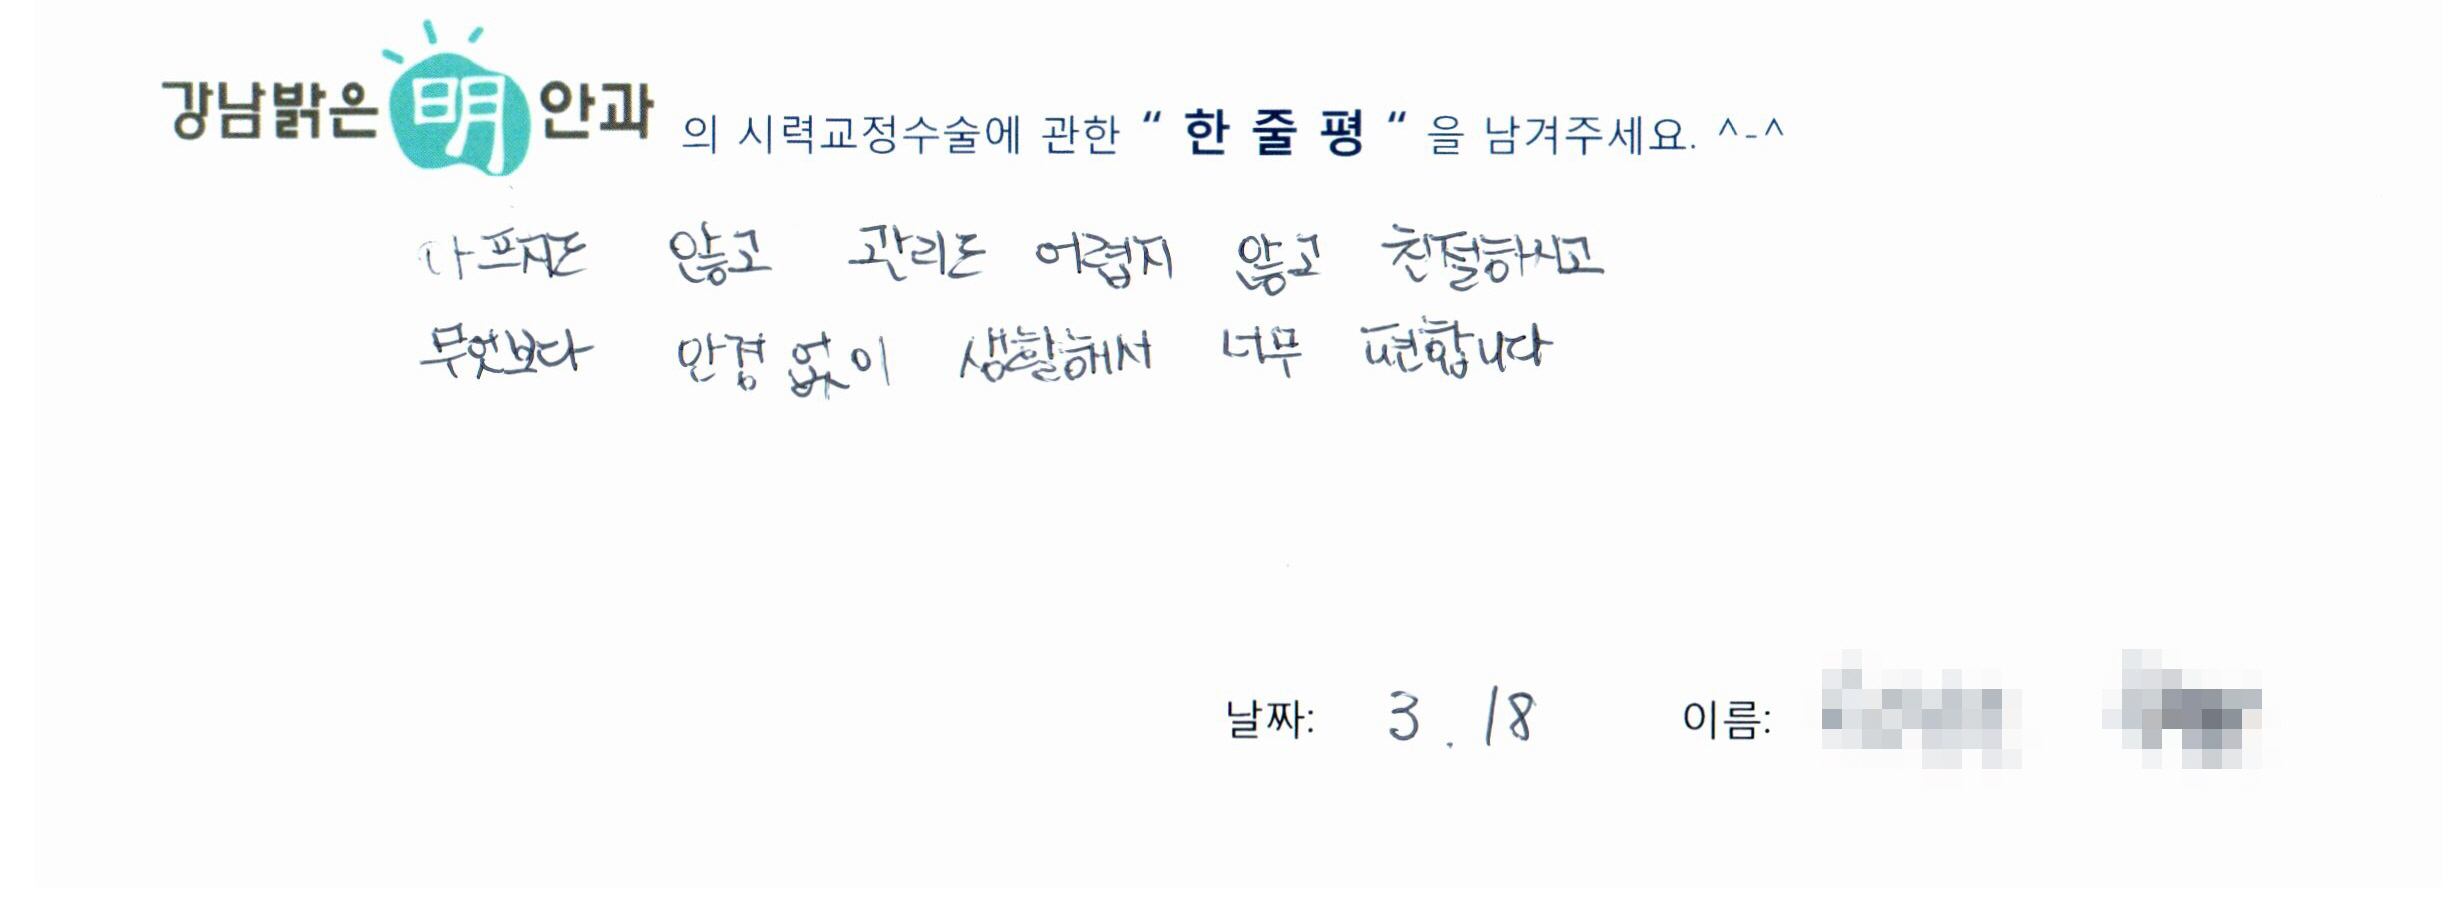 강남밝은 明 안과 의 시력교정수술에 관한 “ 한 줄 평 “ 을 남겨주세요. ^-^
아프지도 않고 관리도 어렵지 않고 친절하시고
무엇보다 안경 없이 생활해서 너무 편합니다
날짜: 3. 18 이름: